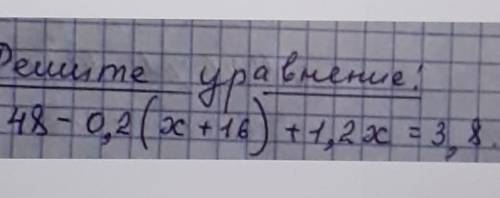 Решите уравнение!
48 - 0,2(x + 16) + 1,2x = 3,8.